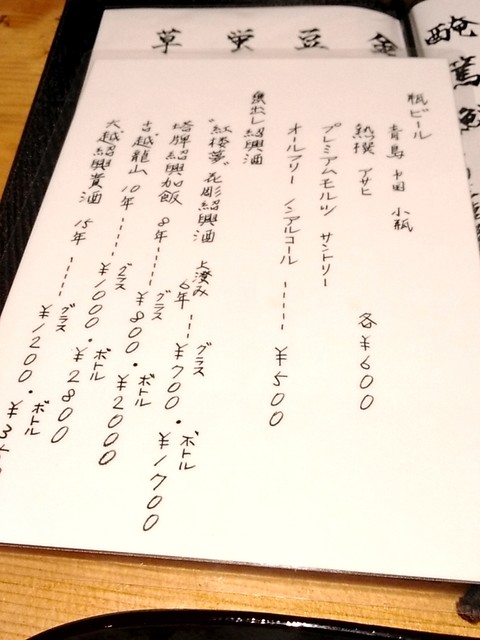 瓶ビール
青島 中国 小瓶
熟撰 アサヒ
各¥600
プレミアムモルツ サントリー
オールフリー ノンアルコール ------ ¥500
甕出し紹興酒
"紅楼夢"花彫紹興酒 上澄み 6年 --- グラス ¥700・ボトル ¥1700
塔牌紹興加飯 8年 ---- グラス ¥800・ボトル ¥2000
古越龍山 10年 ----- グラス ¥1000・ボトル ¥2800
大越紹興貴酒 15年 ----- グラス ¥1200・ボトル ¥3
草 蛍 豆 金
醃 篤 鮮